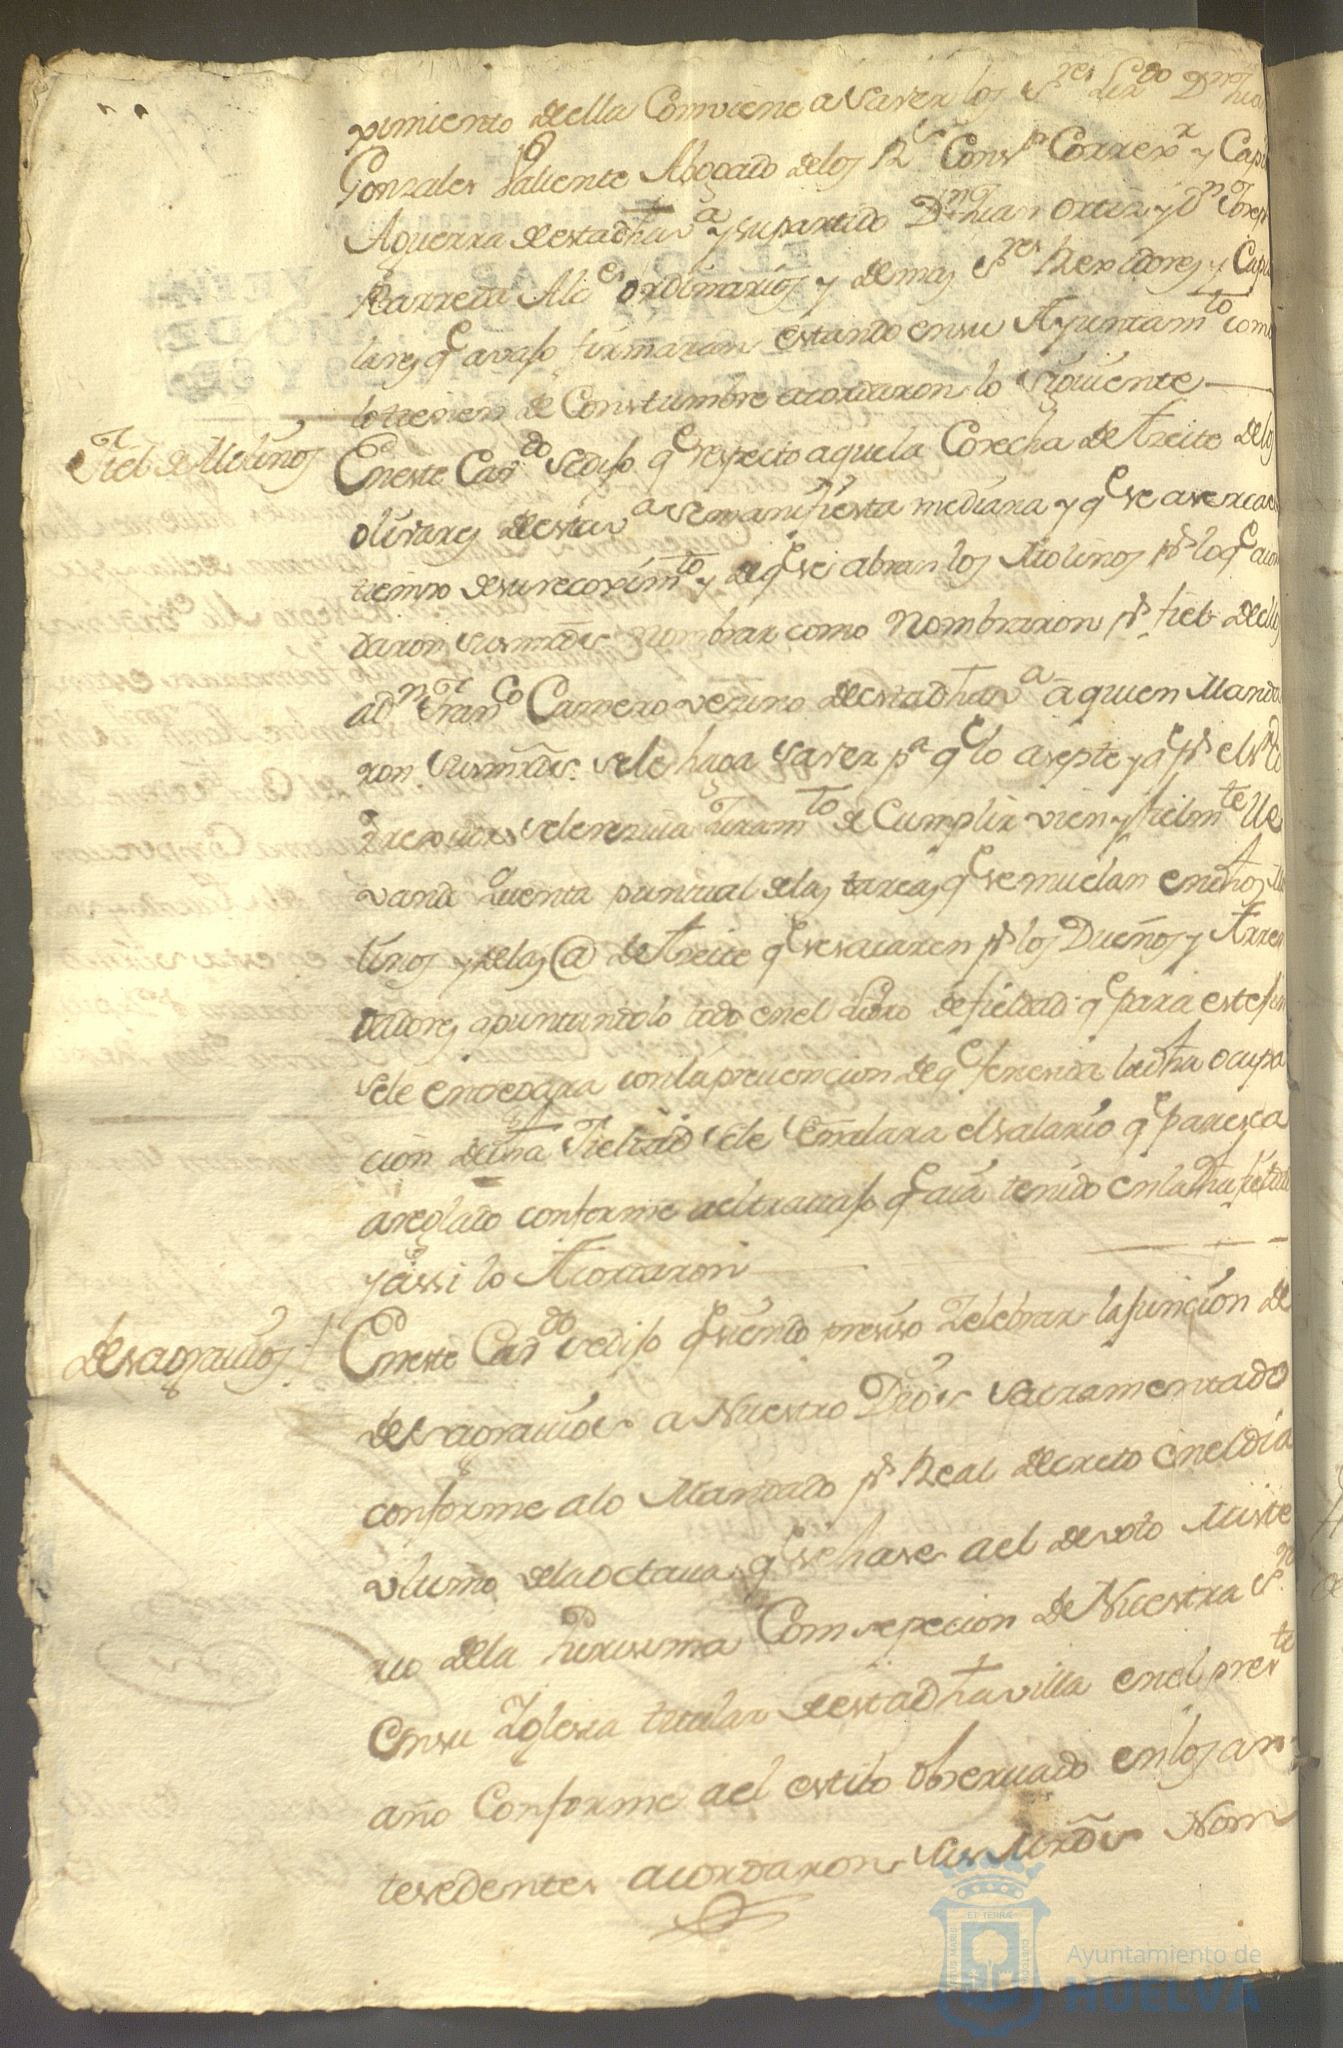 ximiento della Combiene a Saver los S.res Lix.do D.n Jua
Gonzales Valiente Abogado delos R.s Cons.s Correx.r y Capn
Aguerra de esta dha V.a y su partido D.n Juan Ortiz y D.n Josep
Barreda Alc.es ordinarios y demas S.res Rexidores y Capitu
lares q.e avajo firmaran estando en su Ayuntam.to como
lo tienen de Constumbre acordaron lo siguiente
Fiel de Molinos
En este Cav.do se dijo q.e respecto aque la Corecha de Azeite de los
olivares de esta V.a se manifiesta mediana y q.e se aserca el
tiempo de su recoxim.to y de q.e se abran los Molinos p.r lo q.e acor
daron sus mrds. nombrar como nombraron p.r fiel dellos
a D.n Fran.co Carrero vezino de esta dha V.a a quien Manda
ron sus mrds. se le haga saver p.a q.e lo asepte y q.e p.r el
se le resiva Juram.to de Cumplir vien y fielm.te lle
vand quenta puntual de las tareas q.e se muelan en dhos Mo
linos y de las @ de Azeite q.e se sacaren p.r los Dueños y Arren
dadores apuntandolo todo en el Libro de fieldad q.e para este fin
se le entregara con la prevencion de q.e fenesida la dha ocupa
cion de dha Fieldad se le señalara el salario q.e paresca
areglado conforme a el travajo q.e aia tenido en la dha fieldad
y assi lo Acordaron
desagravios
En este Cav.do se dijo q.e siendo presiso Zelebrar la funcion de
desagravios a Nuestro Dios Sacramentado
conforme a lo Mandado p.r Real decreto en el dia
vltimo de la octava q.e se hase a el devoto Miste
rio della Purissima Comsepcion de Nuestra S.ra
en su Yglesia titular de esta dha villa en el pres.te
año Conforme a el estilo obserbado en los an
tesedentes acordaron sus Mrds. Nom
Ayuntamiento de
HUELVA